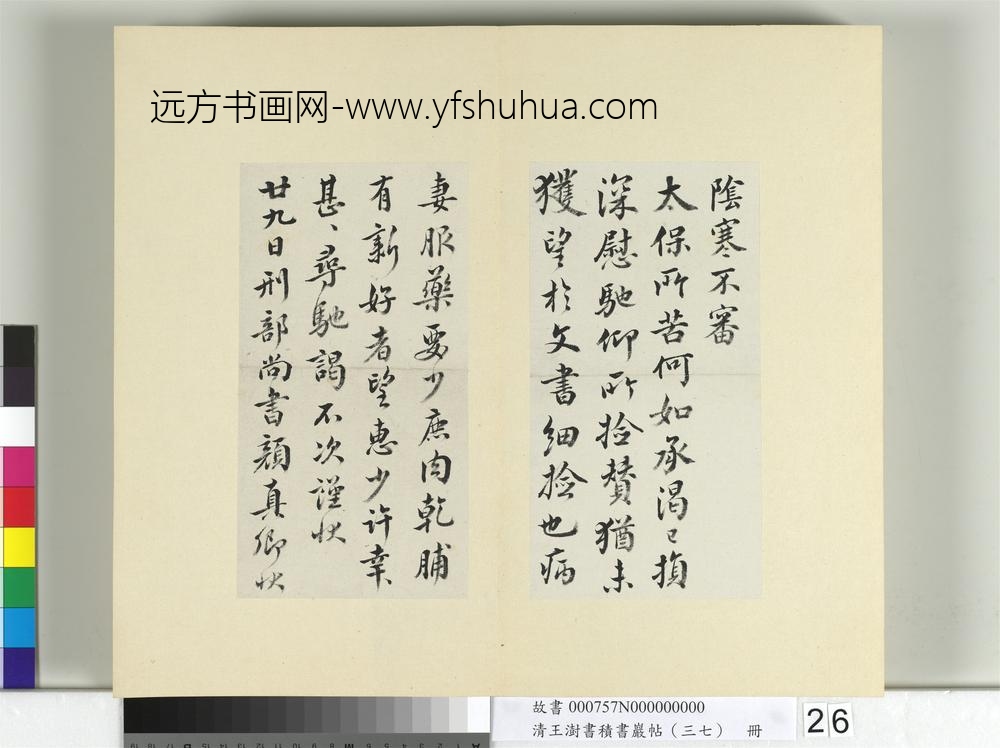 远方书画网-www.yfshuhua.com
陰寒不審
太保所苦何如承渴已損
深慰馳仰所撿贊猶未
獲望於文書細撿也病
妻服藥要少鹿肉乾脯
有新好者望惠少許幸
甚、尋馳謁不次謹狀
廿九日刑部尚書顏真卿狀
故書 000757N000000000
清王澍書積書巖帖(三七) 冊
26